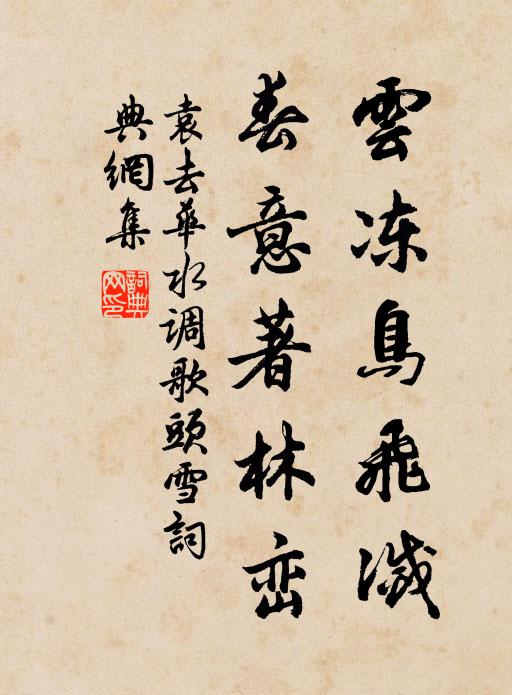 雲冻鳥飛滅
春意著林峦
袁去華水调歌頭雪詞
典網集
詞典网印